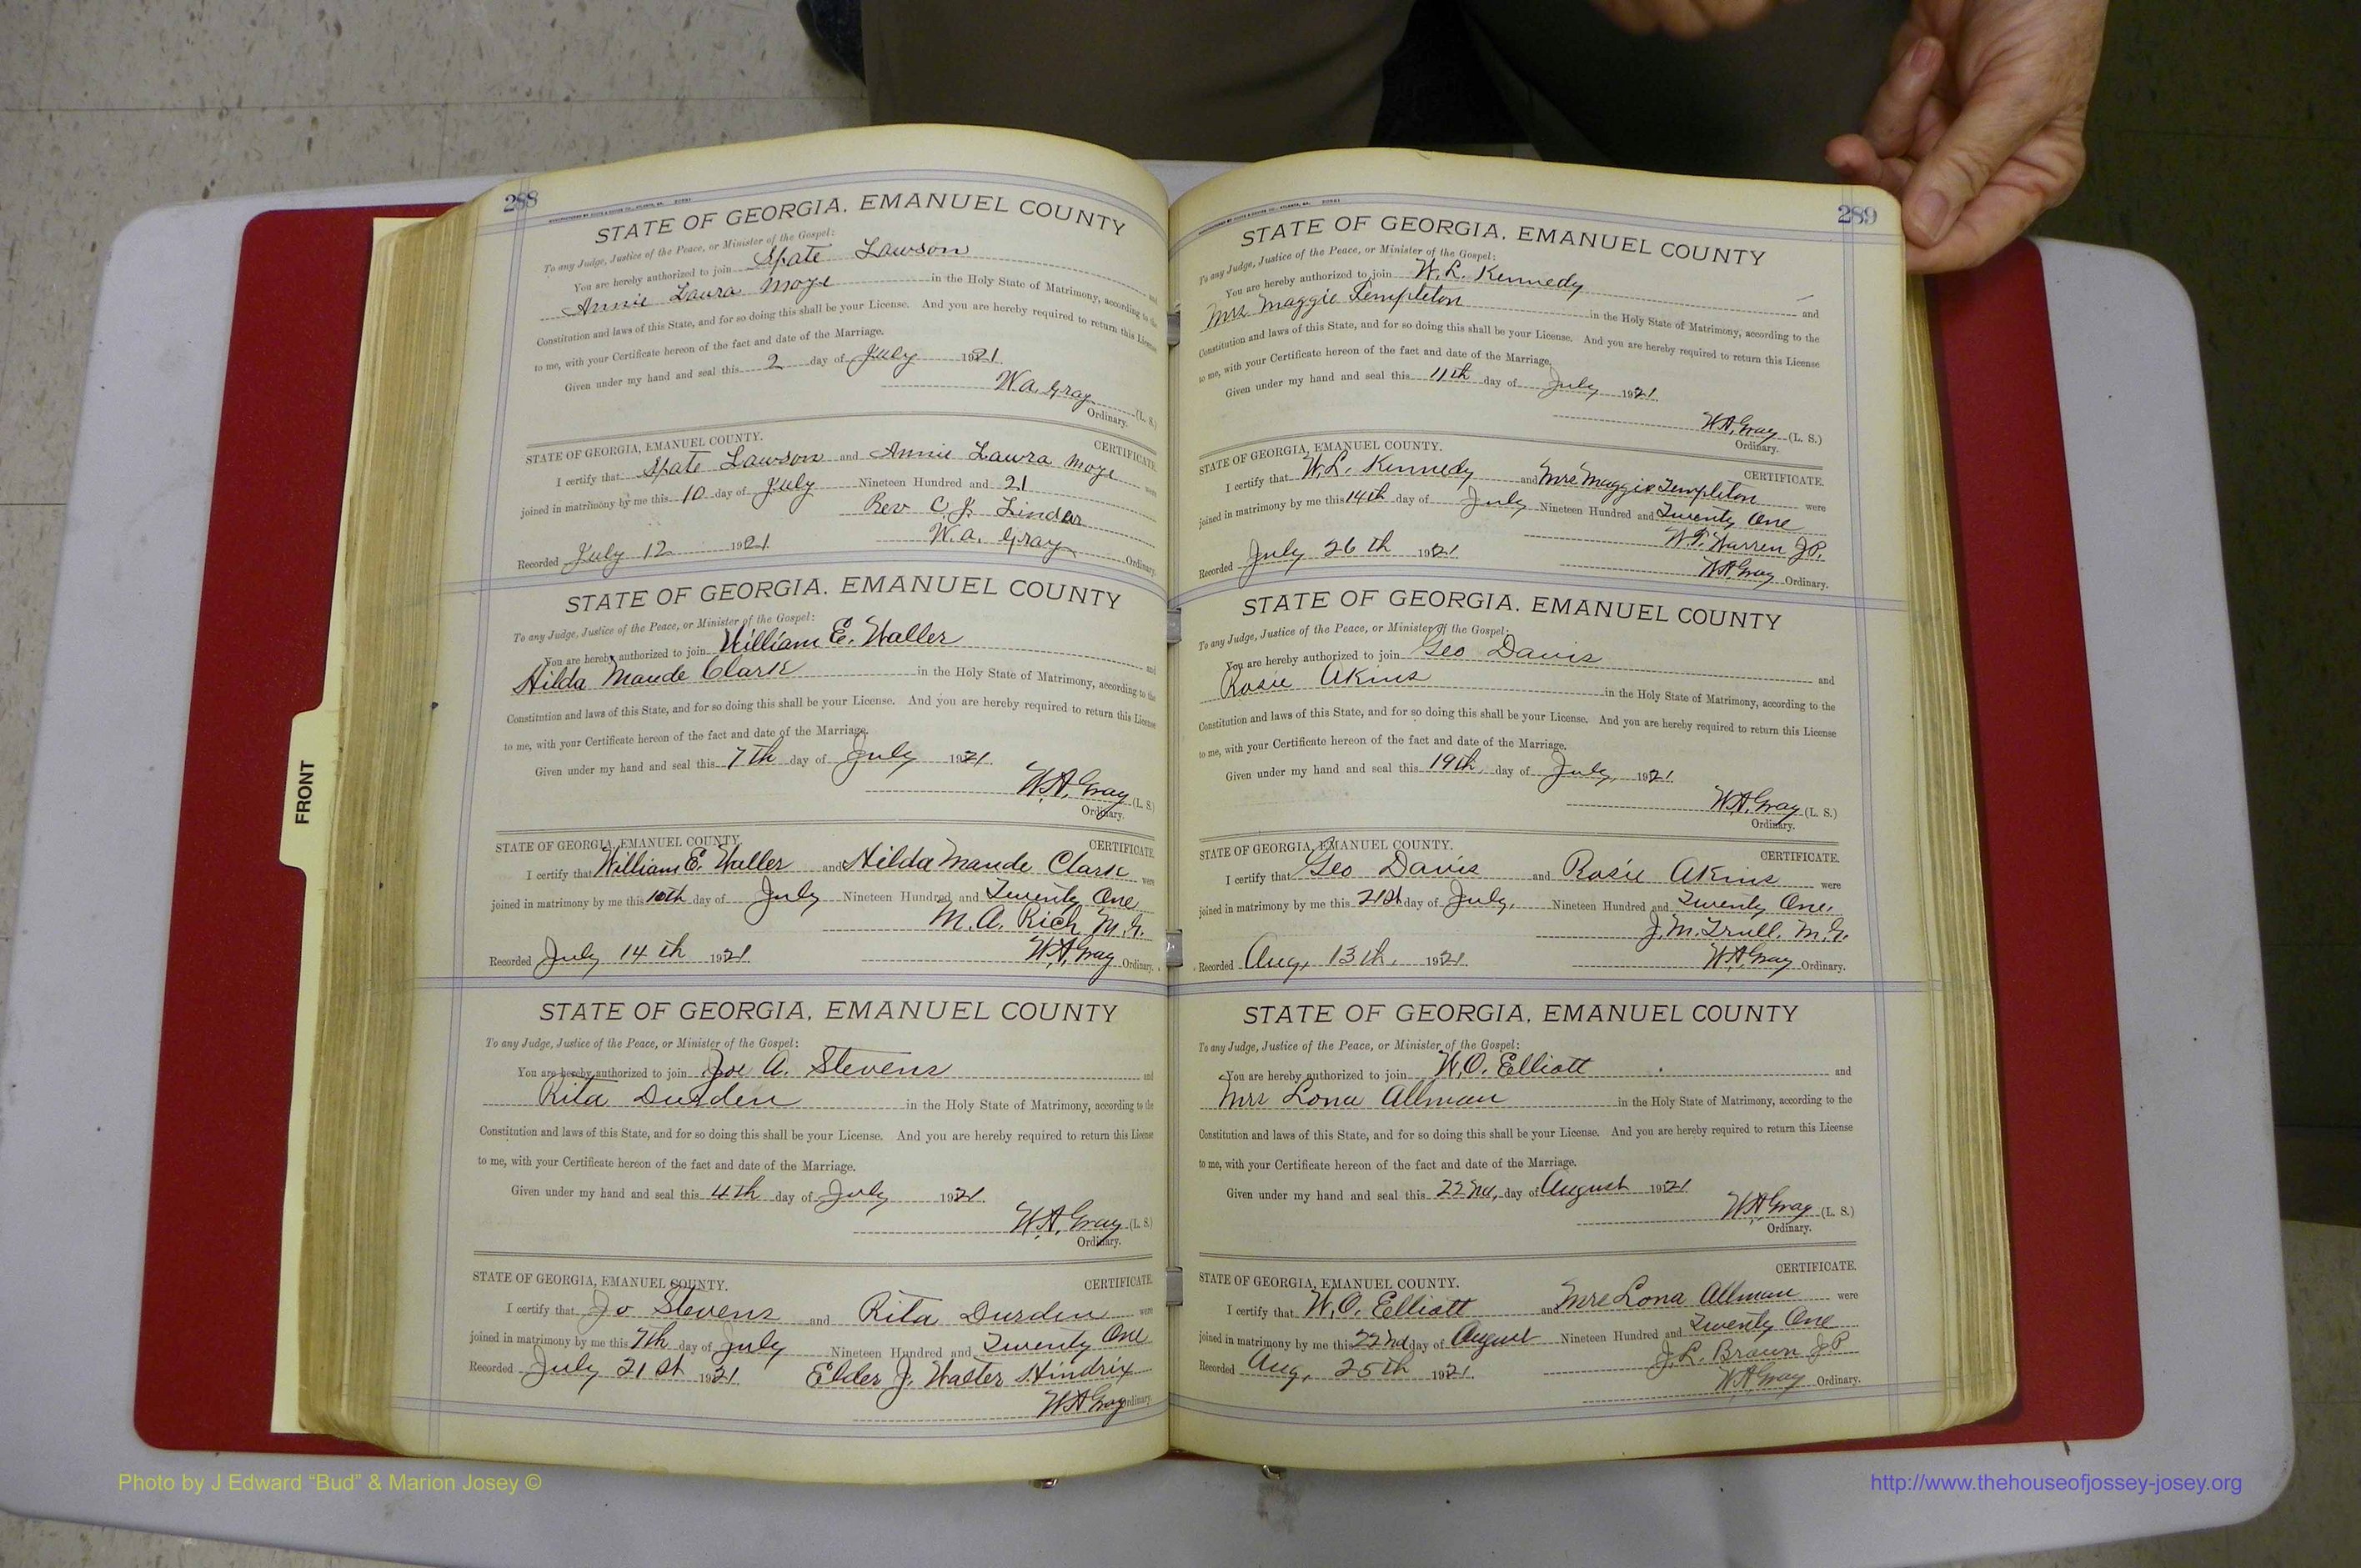 288
STATE OF GEORGIA, EMANUEL COUNTY
To any Judge, Justice of the Peace, or Minister of the Gospel:
You are hereby authorized to join Spate Lawson and
Annie Laura Moye in the Holy State of Matrimony, according to the
Constitution and laws of this State, and for so doing this shall be your License. And you are hereby required to return this License
to me, with your Certificate hereon of the fact and date of the Marriage.
Given under my hand and seal this 2 day of July 1921.
W.A. Gray (L. S.)
Ordinary.
STATE OF GEORGIA, EMANUEL COUNTY. CERTIFICATE
I certify that Spate Lawson and Annie Laura Moye were
joined in matrimony by me this 10 day of July Nineteen Hundred and 21
Rev C. J. Linder
Recorded July 12 1921 W.A. Gray Ordinary.
STATE OF GEORGIA, EMANUEL COUNTY
To any Judge, Justice of the Peace, or Minister of the Gospel:
You are hereby authorized to join William E. Waller and
Hilda Maude Clark in the Holy State of Matrimony, according to the
Constitution and laws of this State, and for so doing this shall be your License. And you are hereby required to return this License
to me, with your Certificate hereon of the fact and date of the Marriage.
Given under my hand and seal this 7th day of July 1921.
W.A. Gray (L. S.)
Ordinary.
STATE OF GEORGIA, EMANUEL COUNTY. CERTIFICATE.
I certify that William E. Waller and Hilda Maude Clark were
joined in matrimony by me this 10th day of July Nineteen Hundred and Twenty One
M.A. Rich M.G.
Recorded July 14th 1921 W.A. Gray Ordinary.
STATE OF GEORGIA, EMANUEL COUNTY
To any Judge, Justice of the Peace, or Minister of the Gospel:
You are hereby authorized to join Joe A. Stevens and
Rita Durden in the Holy State of Matrimony, according to the
Constitution and laws of this State, and for so doing this shall be your License. And you are hereby required to return this License
to me, with your Certificate hereon of the fact and date of the Marriage.
Given under my hand and seal this 4th day of July 1921.
W.A. Gray (L. S.)
Ordinary.
STATE OF GEORGIA, EMANUEL COUNTY. CERTIFICATE.
I certify that Jo Stevens and Rita Durden were
joined in matrimony by me this 7th day of July Nineteen Hundred and Twenty One
Recorded July 21st 1921. Elder J. Walter Hindrix
W.A. Gray Ordinary.
289
STATE OF GEORGIA, EMANUEL COUNTY
To any Judge, Justice of the Peace, or Minister of the Gospel:
You are hereby authorized to join W. L. Kennedy and
Mrs Maggie Templeton in the Holy State of Matrimony, according to the
Constitution and laws of this State, and for so doing this shall be your License. And you are hereby required to return this License
to me, with your Certificate hereon of the fact and date of the Marriage.
Given under my hand and seal this 11th day of July 1921.
W.A. Gray (L. S.)
Ordinary.
STATE OF GEORGIA, EMANUEL COUNTY. CERTIFICATE.
I certify that W. L. Kennedy and Mrs Maggie Templeton were
joined in matrimony by me this 14th day of July Nineteen Hundred and Twenty One
Warren J.P.
Recorded July 26th 1921. W.A. Gray Ordinary.
STATE OF GEORGIA, EMANUEL COUNTY
To any Judge, Justice of the Peace, or Minister of the Gospel:
You are hereby authorized to join Geo Davis and
Rosie Akins in the Holy State of Matrimony, according to the
Constitution and laws of this State, and for so doing this shall be your License. And you are hereby required to return this License
to me, with your Certificate hereon of the fact and date of the Marriage.
Given under my hand and seal this 19th, day of July, 1921.
W.A. Gray (L. S.)
Ordinary.
STATE OF GEORGIA, EMANUEL COUNTY. CERTIFICATE.
I certify that Geo Davis and Rosie Akins were
joined in matrimony by me this 21st day of July, Nineteen Hundred and Twenty One.
J. M. Trull, M.G.
Recorded Aug, 13th, 1921. W.A. Gray Ordinary.
STATE OF GEORGIA, EMANUEL COUNTY
To any Judge, Justice of the Peace, or Minister of the Gospel:
You are hereby authorized to join W. O. Elliott and
Mrs Lona Allman in the Holy State of Matrimony, according to the
Constitution and laws of this State, and for so doing this shall be your License. And you are hereby required to return this License
to me, with your Certificate hereon of the fact and date of the Marriage.
Given under my hand and seal this 22nd, day of August 1921
W.A. Gray (L. S.)
Ordinary.
STATE OF GEORGIA, EMANUEL COUNTY. CERTIFICATE.
I certify that W. O. Elliott and Mrs Lona Allman were
joined in matrimony by me this 22nd day of August Nineteen Hundred and Twenty One
J. L. Brown J.P.
Recorded Aug, 25th 1921. W.A. Gray Ordinary.
FRONT
Photo by J Edward “Bud” & Marion Josey ©
http://www.thehouseofjossey-josey.org